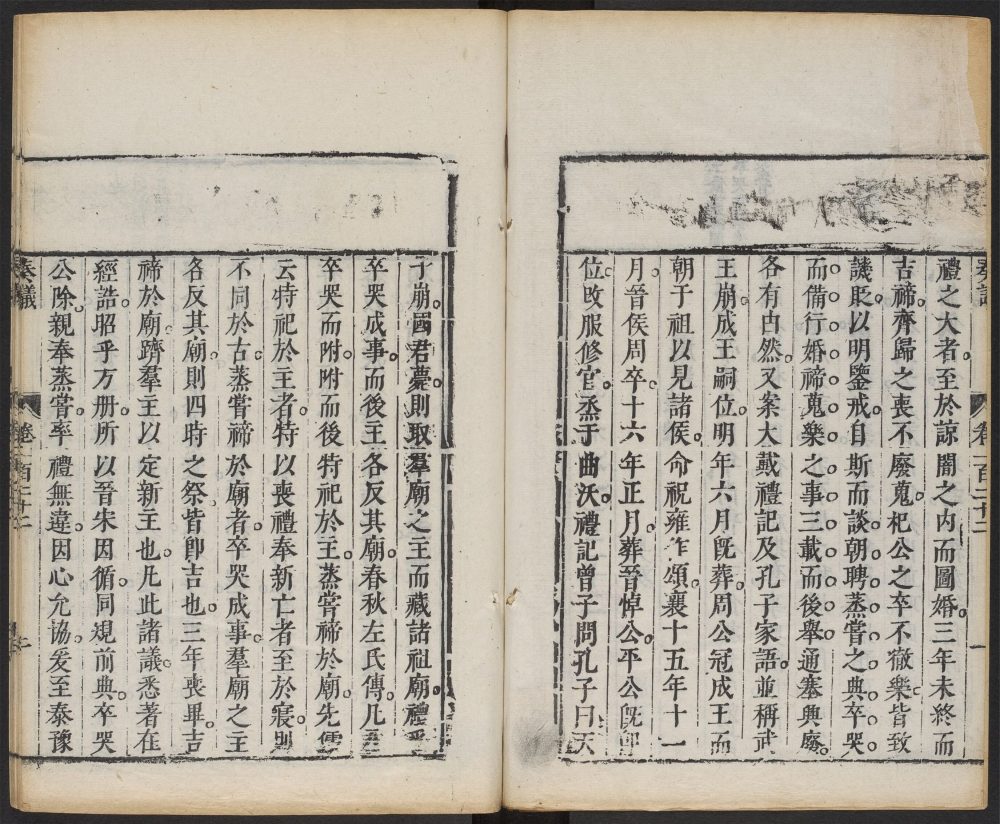 奏議 卷一百二十二 一
禮之大者至於諒闇之内而圖婚三年未終而
吉禘齊歸之喪不廢蒐杞公之卒不徹樂皆致
譏貶以明鑒戒自斯而談朝聘蒸嘗之典卒哭
而備行婚禘蒐樂之事三載而後舉通塞興廢
各有由然又案大戴禮記及孔子家語並稱武
王崩成王嗣位明年六月既葬周公冠成王而
朝于祖以見諸侯命祝雍作頌襄十五年十一
月晉侯周卒十六年正月葬晉悼公平公既即
位改服修官烝于曲沃禮記曾子問孔子曰天
子崩國君薨則取羣廟之主而藏諸祖廟禮
卒哭成事而後主各反其廟春秋左氏傳凡君
卒哭而祔祔而後特祀於主蒸嘗禘於廟先儒
云特祀於主者特以喪禮奉新亡者至於寢則
不同於古蒸嘗禘於廟者卒哭成事羣廟之主
各反其廟則四時之祭皆卽吉也三年喪畢吉
禘於廟躋羣主以定新主也凡此諸議悉著在
經誥昭乎方册所以晉宋因循同規前典卒哭
公除親奉蒸嘗率禮無違因心允協爰至泰豫
奏議 卷一百二十二